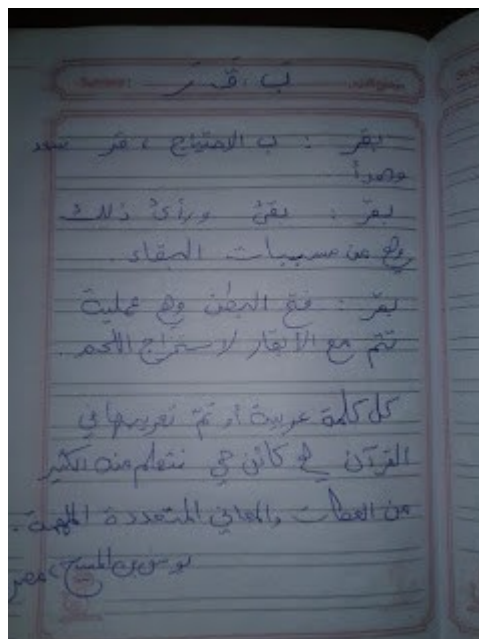 بَ ، قَ رَ
بقر : ب الاحتياج ، قر سعد
وهدأ
بقر : بقيَ ورأى ذلك
وهو من مسببات البقاء .
بقر : فتح البطن وهو عملية
تتم مع الأبقار لاستخراج اللحم .
كل كلمة عربية أو تمّ تعريبها في
القرآن هو كائن حي نتعلم منه الكثير
من العظات والمعاني المتعددة المهمة .
يوسف بن المسيح ، مصر